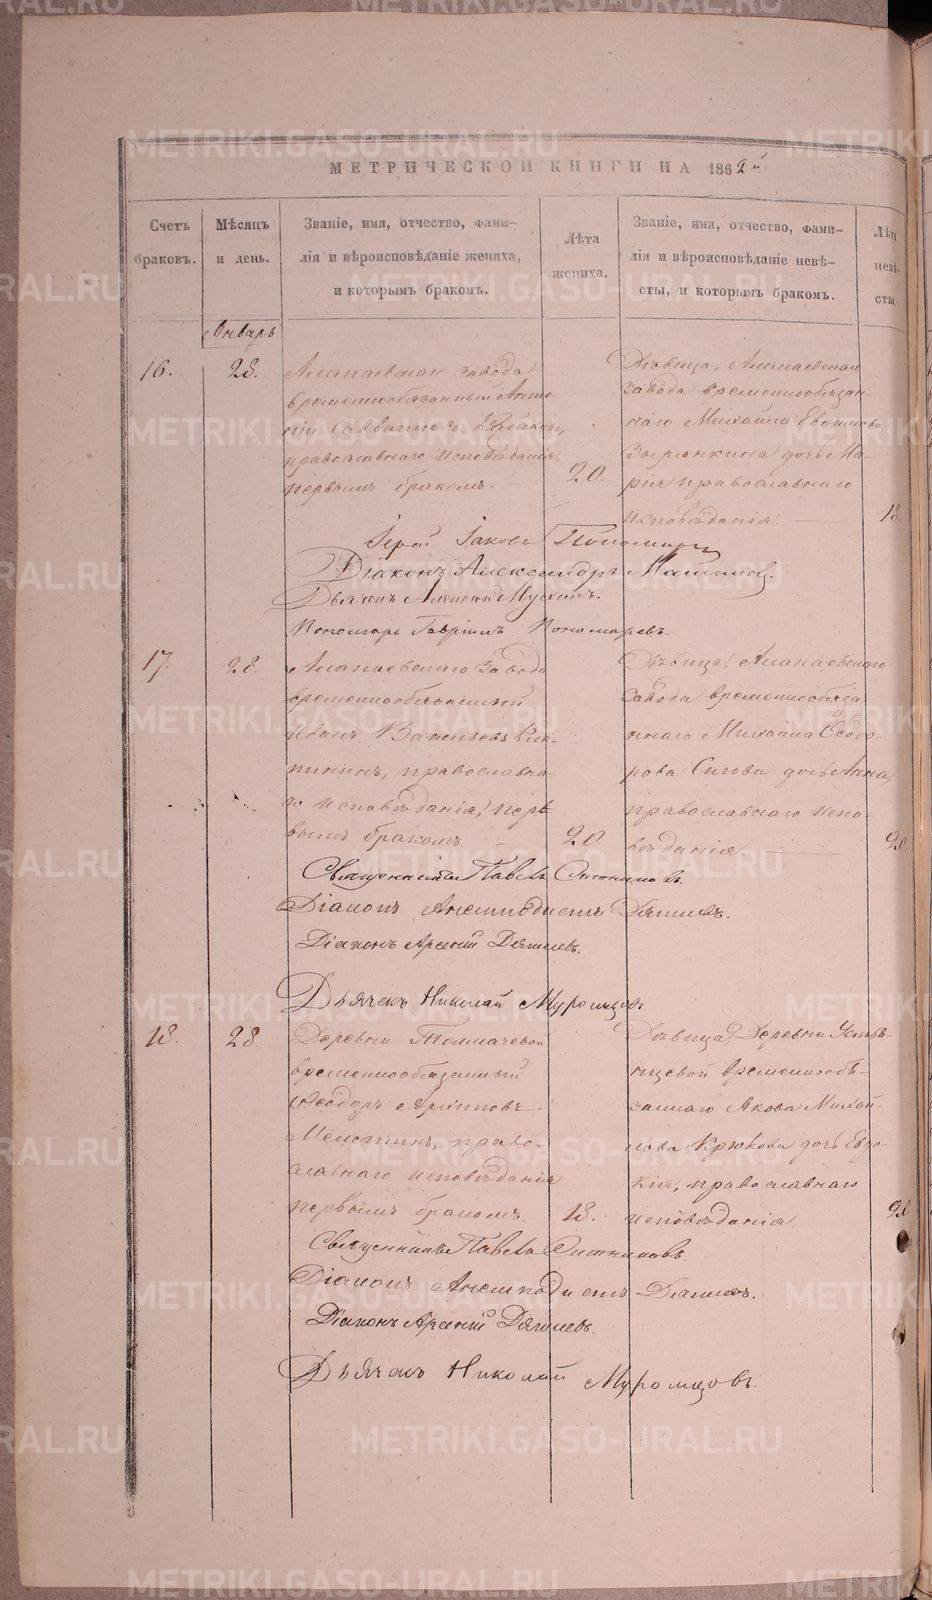 МЕТРИЧЕСКОЙ КНИГИ НА 1862й
Счетъ браковъ.
Мѣсяцъ и день.
Званіе, имя, отчество, фами-
лія и вѣроисповѣданіе жениха,
и которымъ бракомъ.
Лѣта жениха.
Званіе, имя, отчество, фами-
лія и вѣроисповѣданіе невѣ-
сты, и которымъ бракомъ.
Лѣта невѣ-
сты
Январь
16.
28.
Алапаевскаго завода
временнообязанный Анто-
ній Савватіевъ
православнаго исповѣданія,
первымъ бракомъ.
20.
Дѣвица, Алапаевскаго
завода временнообязан-
наго Михаила Евѳимова
Зырянкина дочь Ма-
рія православнаго
исповѣданія
18.
Іерей Іаковъ Пономаревъ
Діаконъ Александръ
Дьячекъ Алексѣй
Пономарь Гавріилъ Пономаревъ.
17.
28.
Алапаевскаго завода
временнообязанный
Иванъ Васильевъ Кля-
пининъ, православна-
го исповѣданія, пер-
вымъ бракомъ.
20.
Дѣвица, Алапаевскаго
завода временнообяза-
ннаго Михаила Ѳеодо-
рова Сигова дочь Анна,
православнаго испо-
вѣданія
20.
Священникъ Павелъ Ситниковъ.
Діаконъ Анемподистъ Дягилевъ.
Діаконъ Арсеній Дягилевъ.
Дьячекъ Николай Муромцовъ.
18.
28
Деревни Толмачевой
временнообязанный
Ѳеодоръ Архиповъ
право-
славнаго исповѣданія
первымъ бракомъ.
18.
Дѣвица, Деревни Устья-
нцевой временнообя-
заннаго Якова Михай-
лова Крюкова дочь Евдо-
кія, православнаго
исповѣданія
Священникъ Павелъ Ситниковъ.
Діаконъ Анемподистъ Дягилевъ.
Діаконъ Арсеній Дягилевъ.
Дьячекъ Николай Муромцовъ.
METRIKI.GASO-URAL.RU